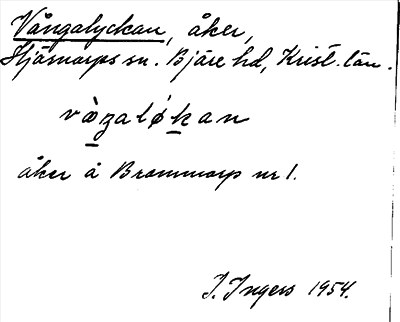 Vångalyckan, åker,
Hjärnarps sn. Bjäre hd, Krist. län.
åker å Brommarp nr 1.
I. Ingers 1954.